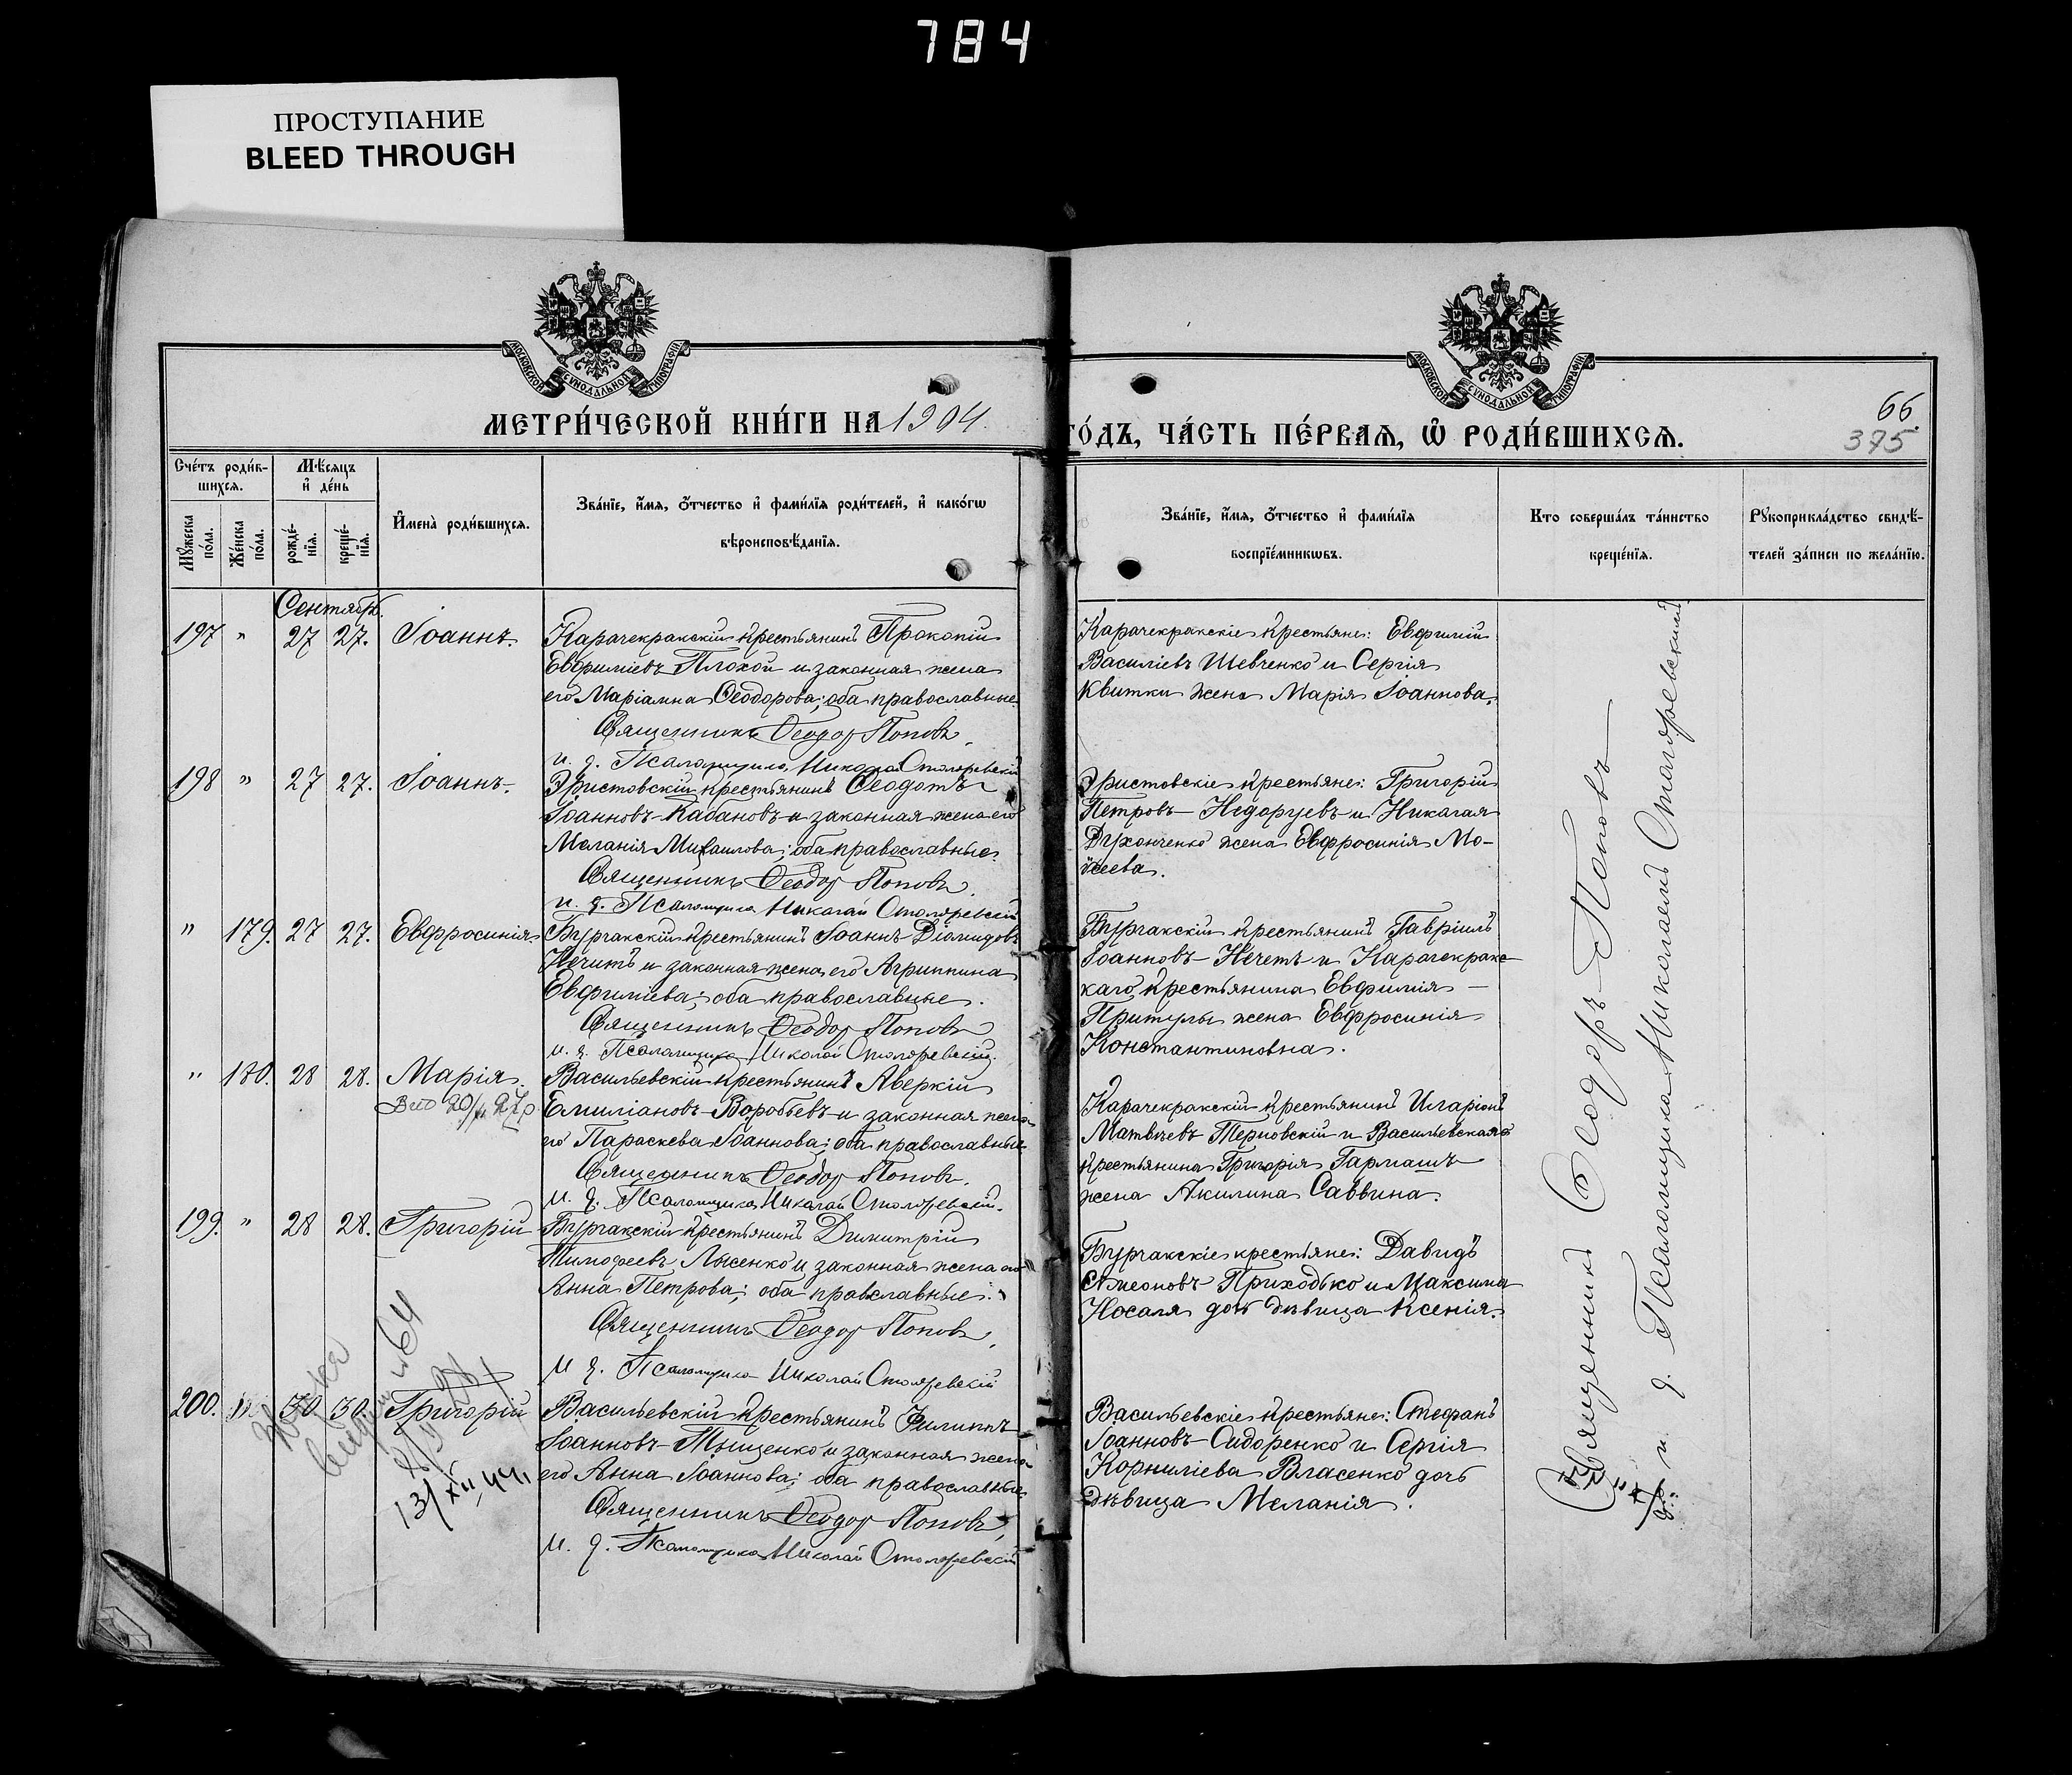 784
ПРОСТУПАНИЕ
BLEED THROUGH
МОСКОВСКОЙ СѴНОДАЛЬНОЙ ТИПОГРАФІИ
МОСКОВСКОЙ СѴНОДАЛЬНОЙ ТИПОГРАФІИ
МЕТРИ́ЧЕСКОЙ КНИ́ГИ НА 1904.
ГО́ДЪ, ЧА́СТЬ ПЕ́РВАѦ, Ѡ҆ РОДИ́ВШИХСѦ.
66.
375
Сче́тъ роди́в-
шихсѧ.
Мѣ́сѧцъ
и҆ де́нь
Мꙋ́жеска
по́ла.
Же́нска
по́ла.
рожде́-
нїѧ.
креще́-
нїѧ.
И҆мена̀ роди́вшихсѧ.
Зва́нїе, и҆́мѧ, ѻ҆́тчество и҆ фами́лїѧ роди́телей, и҆ како́гѡ
вѣроисповѣ́данїѧ.
Зва́нїе, и҆́мѧ, ѻ҆́тчество и҆ фами́лїѧ
воспрїе́мникѡвъ.
Кто соверша́лъ та́инство
креще́нїѧ.
Рꙋкоприкла́дство свидѣ́-
телей за́писи по жела́нїю.
Сентябрь.
197 " 27 27. Іоаннъ.
Карачекракскій крестьянинъ Прокопій
Евфиміевъ Плохой и законная жена
его Маріамна Ѳеодорова; оба православные.
Священникъ Ѳеодоръ Поповъ.
и. д. Псаломщика Николай Столяревскій
Карачекракскіе крестьяне: Евфимій
Василіевъ Шевченко и Сергія
Квитки жена Марія Іоаннова.
198 " 27 27. Іоаннъ.
Эристовскій крестьянинъ Ѳеодотъ
Іоанновъ Кабановъ и законная жена его
Меланія Михаилова; оба православные.
Священникъ Ѳеодоръ Поповъ.
и. д. Псаломщика Николай Столяревскій
Эристовскіе крестьяне: Григорій
Петровъ Недоруевъ и Николая
жена Евфросинія Мо-
исеева.
" 179. 27 27. Евфросинія
Бурчакскій крестьянинъ Іоаннъ Діомидовъ
Нечитъ и законная жена его Агриппина
Евфиміева; оба православные.
Священникъ Ѳеодоръ Поповъ
и. д. Псаломщика Николай Столяревскій.
Бурчакскій крестьянинъ Гавріилъ
Іоанновъ Нечетъ и Карачекракс-
каго крестьянина Евфимія
Притулы жена Евфросинія
Константиновна.
" 180. 28 28. Марія.
Васильевскій крестьянинъ Аверкій
Емиліановъ Воробьевъ и законная жена
его Параскева Іоаннова; оба православные
Священникъ Ѳеодоръ Поповъ.
и. д. Псаломщика Николай Столяревскій.
Карачекракскій крестьянинъ Иларіонъ
Матвѣевъ Терновскій и Васильевскаго
крестьянина Григорія Гармашъ
жена Акилина Саввина.
199. " 28 28. Григорій
Бурчакскій крестьянинъ Димитрій
Тимофеевъ Лысенко и законная жена его
Анна Петрова; оба православные.
Священникъ Ѳеодоръ Поповъ,
и д. Псаломщика Николай Столяревскій
Бурчакскіе крестьяне: Давидъ
Симеоновъ Приходько и Максима
Носаля дочь дѣвица Ксенія.
200. " 30 30. Григорій
Васильевскій крестьянинъ Филиппъ
Іоанновъ Тыщенко и законная жена
его Анна Іоаннова; оба православные
Священникъ Ѳеодоръ Поповъ,
и. д. Псаломщика Николай Столяревскій
Васильевскіе крестьяне: Стефанъ
Іоанновъ Сидоренко и Сергія
Корниліева Власенко дочь
дѣвица Меланія.
13/XII 44.
Священникъ Ѳеодоръ Поповъ
и. д. Псаломщика Николаемъ Столяревскимъ